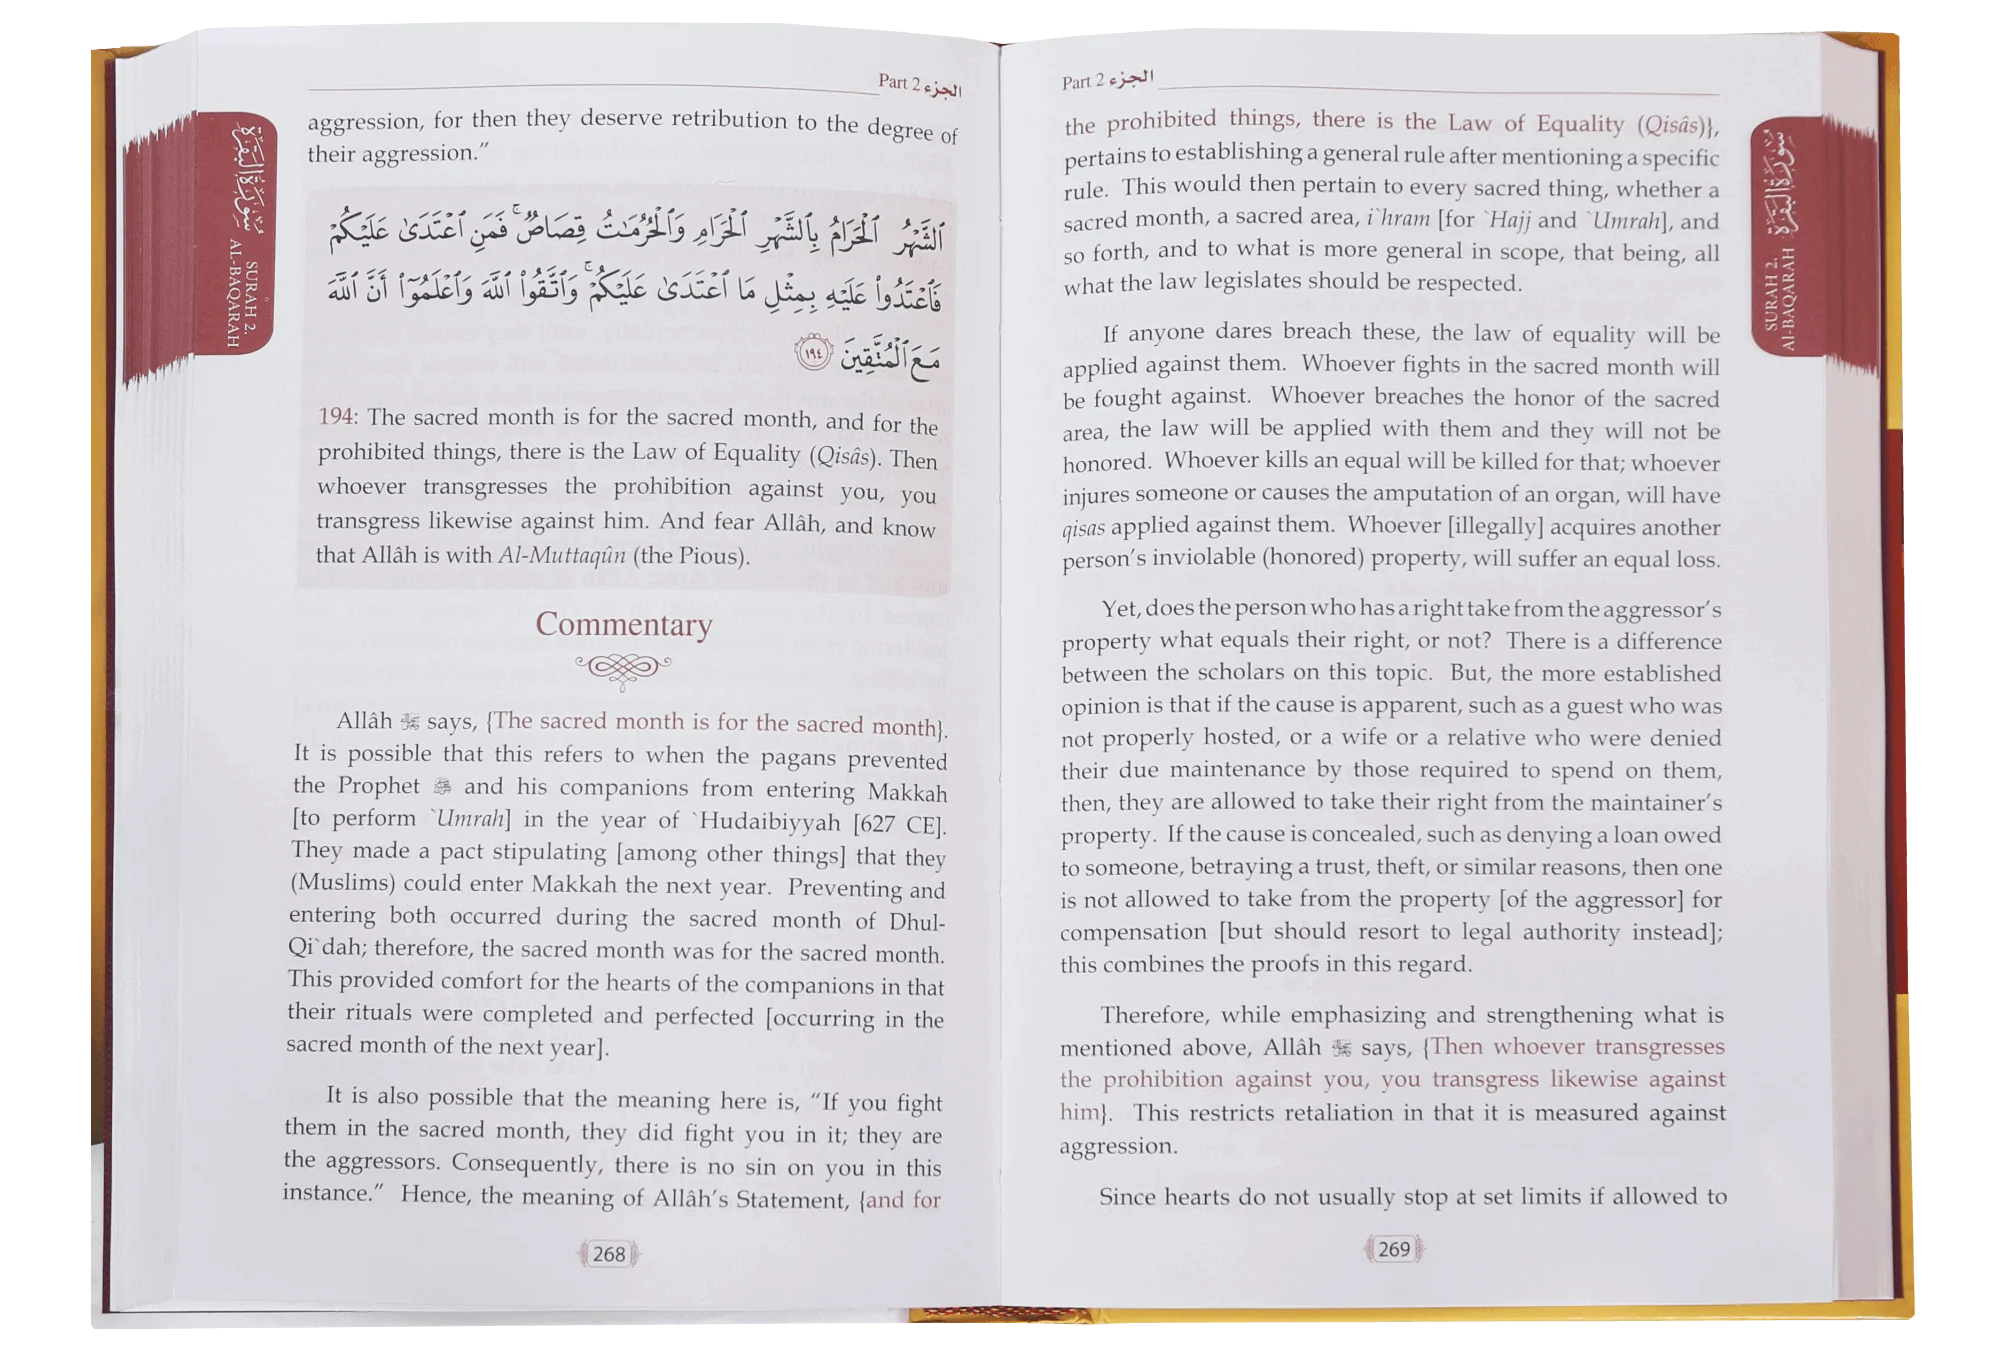 Part 2 الجزء
سورة البقرة
SURAH 2.
AL-BAQARAH
aggression, for then they deserve retribution to the degree of
their aggression.”
ٱلشَّهْرُ ٱلْحَرَامُ بِٱلشَّهْرِ ٱلْحَرَامِ وَٱلْحُرُمَـٰتُ قِصَاصٌ ۚ فَمَنِ ٱعْتَدَىٰ عَلَيْكُمْ
فَٱعْتَدُوا۟ عَلَيْهِ بِمِثْلِ مَا ٱعْتَدَىٰ عَلَيْكُمْ ۚ وَٱتَّقُوا۟ ٱللَّهَ وَٱعْلَمُوٓا۟ أَنَّ ٱللَّهَ
مَعَ ٱلْمُتَّقِينَ ١٩٤
194: The sacred month is for the sacred month, and for the
prohibited things, there is the Law of Equality (Qisâs). Then
whoever transgresses the prohibition against you, you
transgress likewise against him. And fear Allâh, and know
that Allâh is with Al-Muttaqûn (the Pious).
Commentary
Allâh ﷻ says, {The sacred month is for the sacred month}.
It is possible that this refers to when the pagans prevented
the Prophet ﷺ and his companions from entering Makkah
[to perform `Umrah] in the year of `Hudaibiyyah [627 CE].
They made a pact stipulating [among other things] that they
(Muslims) could enter Makkah the next year. Preventing and
entering both occurred during the sacred month of Dhul-
Qi`dah; therefore, the sacred month was for the sacred month.
This provided comfort for the hearts of the companions in that
their rituals were completed and perfected [occurring in the
sacred month of the next year].
It is also possible that the meaning here is, “If you fight
them in the sacred month, they did fight you in it; they are
the aggressors. Consequently, there is no sin on you in this
instance.” Hence, the meaning of Allâh’s Statement, {and for
268
Part 2 الجزء
سورة البقرة
SURAH 2.
Al-BAQARAH
the prohibited things, there is the Law of Equality (Qisâs)},
pertains to establishing a general rule after mentioning a specific
rule. This would then pertain to every sacred thing, whether a
sacred month, a sacred area, i`hram [for `Hajj and `Umrah], and
so forth, and to what is more general in scope, that being, all
what the law legislates should be respected.
If anyone dares breach these, the law of equality will be
applied against them. Whoever fights in the sacred month will
be fought against. Whoever breaches the honor of the sacred
area, the law will be applied with them and they will not be
honored. Whoever kills an equal will be killed for that; whoever
injures someone or causes the amputation of an organ, will have
qisas applied against them. Whoever [illegally] acquires another
person’s inviolable (honored) property, will suffer an equal loss.
Yet, does the person who has a right take from the aggressor’s
property what equals their right, or not? There is a difference
between the scholars on this topic. But, the more established
opinion is that if the cause is apparent, such as a guest who was
not properly hosted, or a wife or a relative who were denied
their due maintenance by those required to spend on them,
then, they are allowed to take their right from the maintainer’s
property. If the cause is concealed, such as denying a loan owed
to someone, betraying a trust, theft, or similar reasons, then one
is not allowed to take from the property [of the aggressor] for
compensation [but should resort to legal authority instead];
this combines the proofs in this regard.
Therefore, while emphasizing and strengthening what is
mentioned above, Allâh ﷻ says, {Then whoever transgresses
the prohibition against you, you transgress likewise against
him}. This restricts retaliation in that it is measured against
aggression.
Since hearts do not usually stop at set limits if allowed to
269